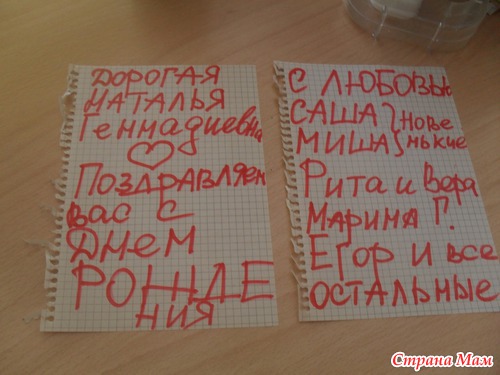 ДОРОГАЯ
НАТАЛЬЯ
Геннадиевна
ПОЗДРАВЛЯЕМ
ВАС С
ДНЕМ
РОЖДЕ
НИЯ
С ЛЮБОВЬЮ
САША } НОВЕ
МИША } НЬКИЕ
Рита и Вера
МАРИНА Г.
ЕГОР И ВСЕ
ОСТАЛЬНЫЕ
Страна Мам